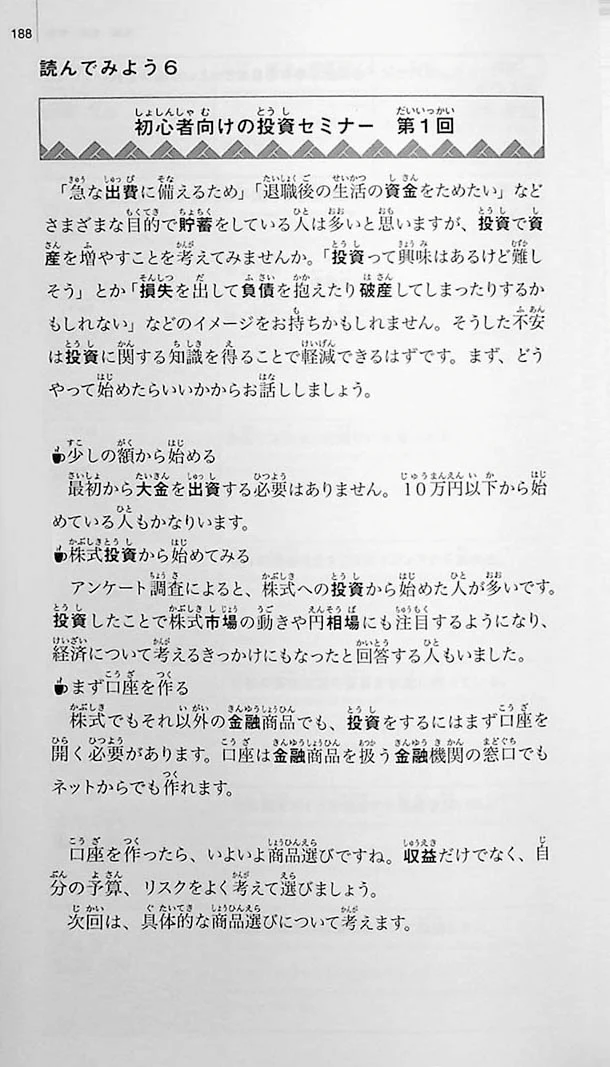 188
読んでみよう6
初心者向けの投資セミナー　第1回
「急な出費に備えるため」「退職後の生活の資金をためたい」など
さまざまな目的で貯蓄をしている人は多いと思いますが、投資で資
産を増やすことを考えてみませんか。「投資って興味はあるけど難し
そう」とか「損失を出して負債を抱えたり破産してしまったりするか
もしれない」などのイメージをお持ちかもしれません。そうした不安
は投資に関する知識を得ることで軽減できるはずです。まず、どう
やって始めたらいいかからお話ししましょう。
少しの額から始める
最初から大金を出資する必要はありません。10万円以下から始
めている人もかなりいます。
株式投資から始めてみる
アンケート調査によると、株式への投資から始めた人が多いです。
投資したことで株式市場の動きや円相場にも注目するようになり、
経済について考えるきっかけにもなったと回答する人もいました。
まず口座を作る
株式でもそれ以外の金融商品でも、投資をするにはまず口座を
開く必要があります。口座は金融商品を扱う金融機関の窓口でも
ネットからでも作れます。
口座を作ったら、いよいよ商品選びですね。収益だけでなく、自
分の予算、リスクをよく考えて選びましょう。
次回は、具体的な商品選びについて考えます。